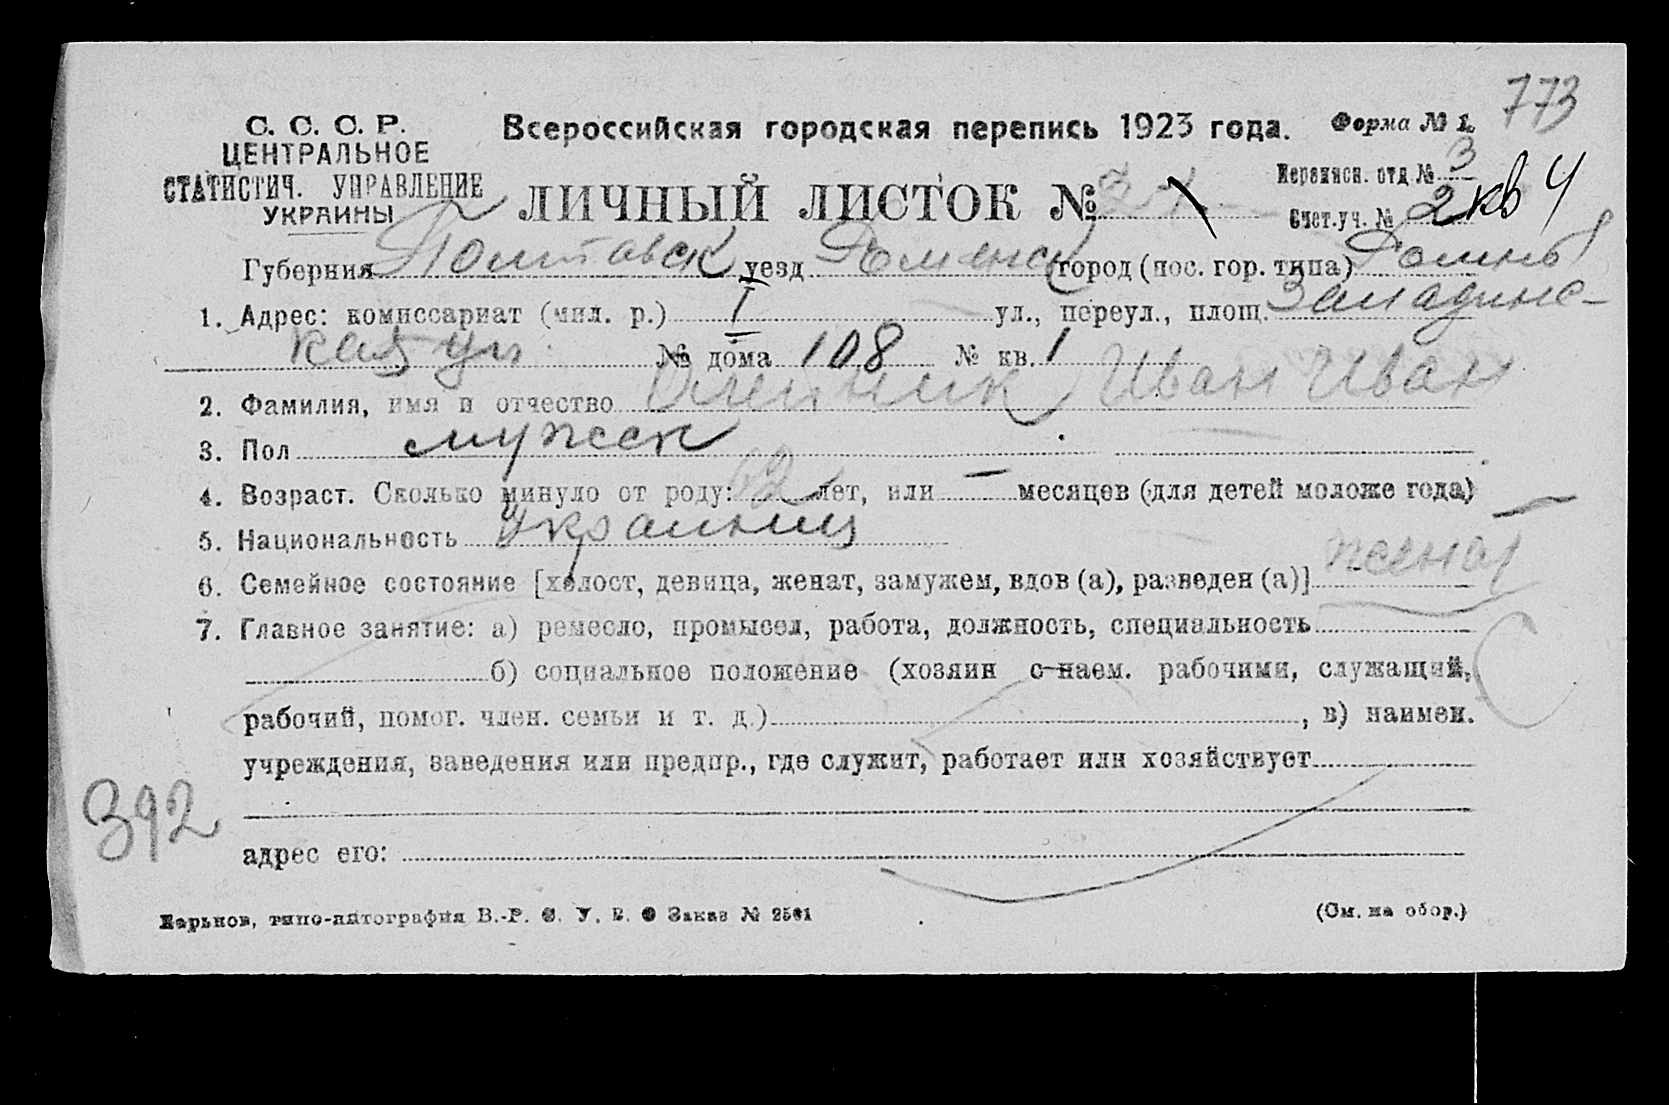 773
С. С. С. Р.
ЦЕНТРАЛЬНОЕ
СТАТИСТИЧ. УПРАВЛЕНИЕ
УКРАИНЫ
Всероссийская городская перепись 1923 года. Форма № 1.
ЛИЧНЫЙ ЛИСТОК №
Переписн. отд. № 3
Счет. уч. № 2 кв 4
Губерния Полтавск уезд Роменск город (пос. гор. типа) Ромны
1. Адрес: комиссариат (мил. р.) I ул., переул., площ. Западинс-
кая ул. № дома 108 № кв. 1
2. Фамилия, имя и отчество Олейник Иван Иван
3. Пол мужск
4. Возраст. Сколько минуло от роду: 62 лет, или — месяцев (для детей моложе года)
5. Национальность Украинец
6. Семейное состояние [холост, девица, женат, замужем, вдов (а), разведен (а)] женат
7. Главное занятие: а) ремесло, промысел, работа, должность, специальность
б) социальное положение (хозяин с наем. рабочими, служащий,
рабочий, помог. член. семьи и т. д.) , в) наимен.
учреждения, заведения или предпр., где служит, работает или хозяйствует
392
адрес его:
Харьков, типо-литография В.-Р. С. У. В. О Заказ № 2561
(См. на обор.)